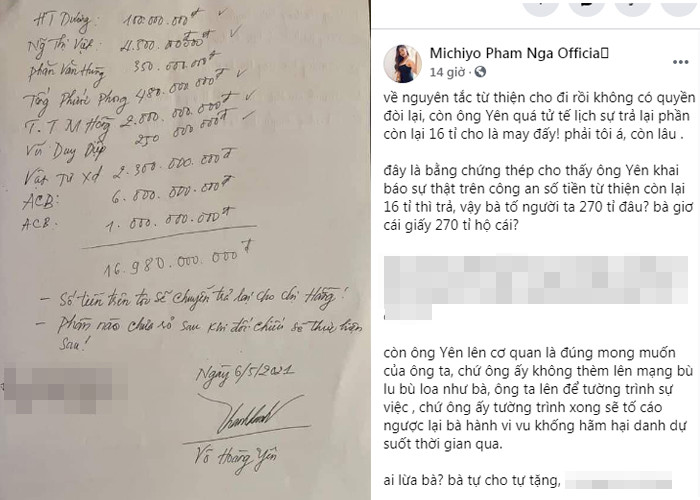 HT Dương: 100.000.000đ ✓
Ng Thị Việt 4.500.000.000đ ✓
Phan Văn Hưng 350.000.000đ
Tống Phước Phong 480.000.000đ ✓
T. T M Hồng 2.000.000.000đ ✓
Vũ Duy Điệp 250 000.000đ
Vật Tư Xd 2.300.000.000đ
ACB: 6.000.000.000đ
ACB: 1.000.000.000đ
16.980.000.000đ
- Số tiền trên tôi sẽ chuyển trả lại cho chị Hằng!
- Phần nào chưa rõ sau khi đối chiếu sẽ thực hiện
sau!
Ngày 6/5/2021
Võ Hoàng Yên
Michiyo Pham Nga Official
14 giờ ·
về nguyên tắc từ thiện cho đi rồi không có quyền
đòi lại, còn ông Yên quá tử tế lịch sự trả lại phần
còn lại 16 tỉ cho là may đấy! phải tôi á, còn lâu .
đây là bằng chứng thép cho thấy ông Yên khai
báo sự thật trên công an số tiền từ thiện còn lại
16 tỉ thì trả, vậy bà tố người ta 270 tỉ đâu? bà giơ
cái giấy 270 tỉ hộ cái?
còn ông Yên lên cơ quan là đúng mong muốn
của ông ta, chứ ông ấy không thèm lên mạng bù
lu bù loa như bà, ông ta lên để tường trình sự
việc , chứ ông ấy tường trình xong sẽ tố cáo
ngược lại bà hành vi vu khống hãm hại danh dự
suốt thời gian qua.
ai lừa bà? bà tự cho tự tặng,